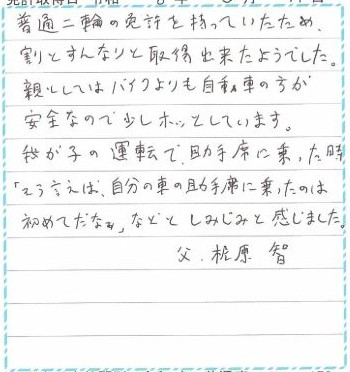 普通二輪の免許を持っていたため、
割とすんなりと取得出来たようでした。
親としてはバイクよりも自動車の方が
安全なので少しホッとしています。
我が子の運転で助手席に乗った時
「そう言えば、自分の車の助手席に乗ったのは
初めてだなぁ」などとしみじみと感じました。
父、梶原 智